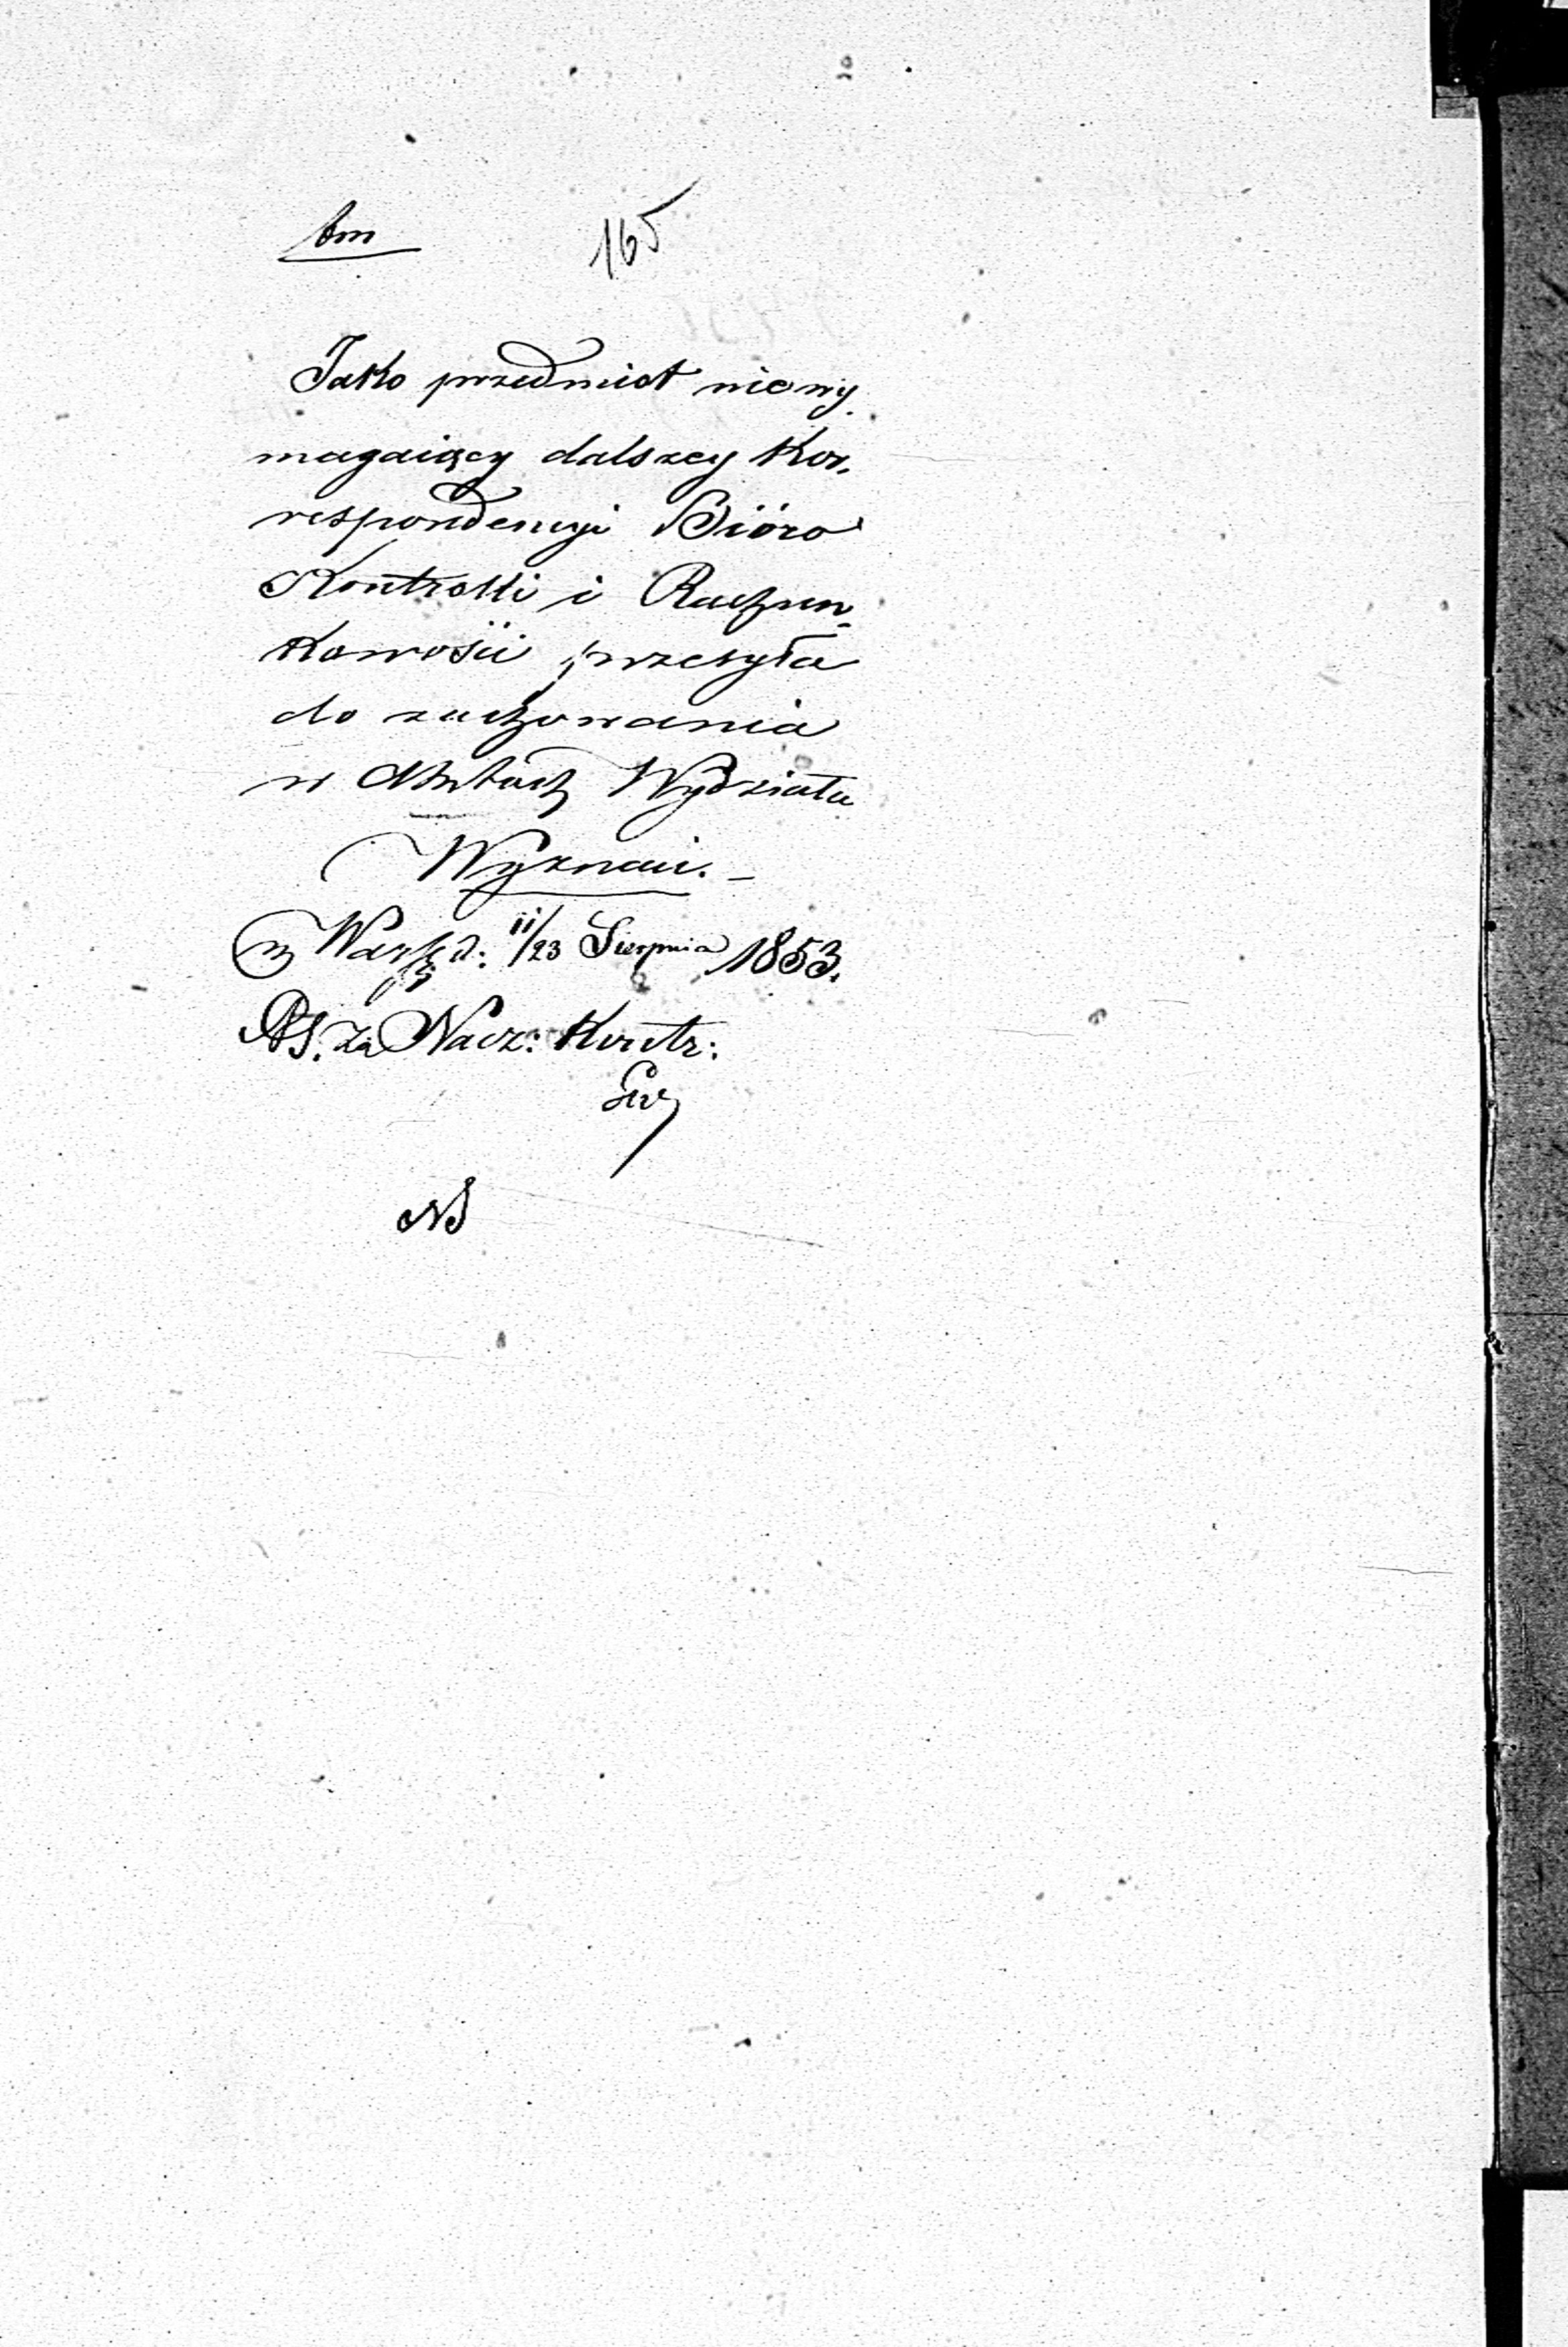 165
Jako przedmiot niewy
magaiący dalszey Kor-
respondencyi Bióro
Kontrolli i Rachun-
kowości przesyła
do zachowania
w Aktach Wydziału
Wyznań. –
w Warsz d: 11/23 Sierpnia 1853.
Za Nacz: Kontr: